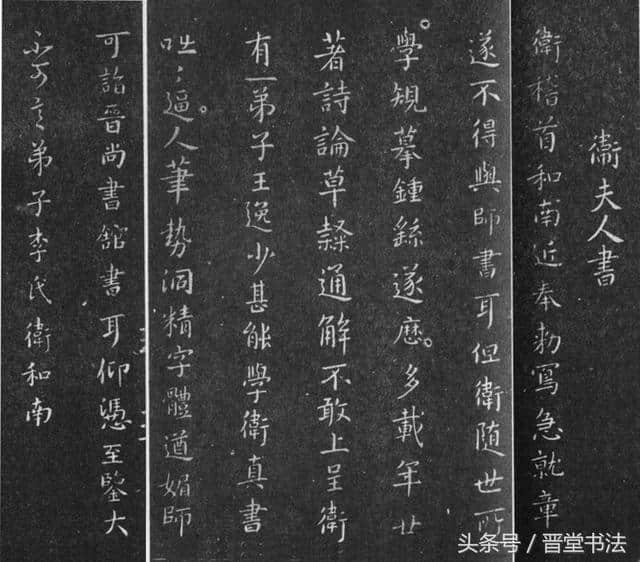 衛夫人書
衛稽首和南近奉勑寫急就章
遂不得與師書耳但衛随世所
學規摹鍾繇遂歷多載年廿
著詩論草隸通解不敢上呈衛
有一弟子王逸少甚能學衛真書
咄々逼人筆勢洞精字體遒媚師
可詣晉尚書館書耳仰憑至鑒大
不可言弟子李氏衛和南
头条号/晋堂书法